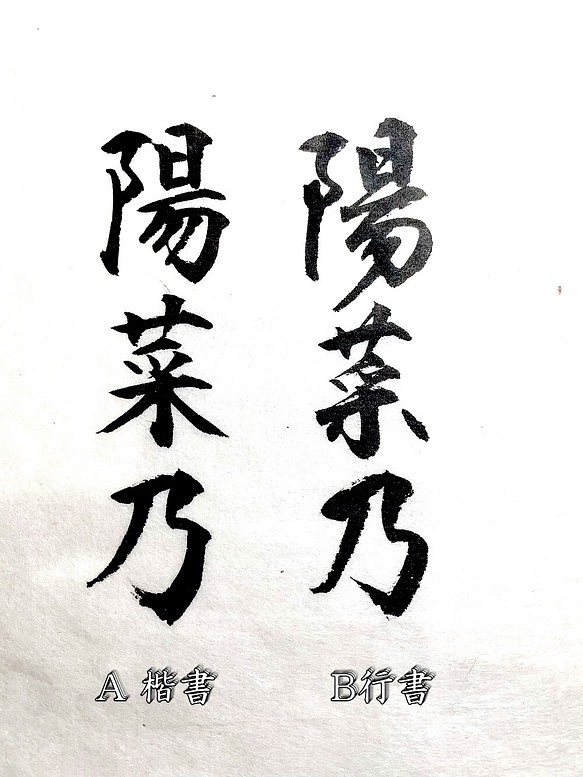 陽菜乃
陽菜乃
A 楷書
B行書